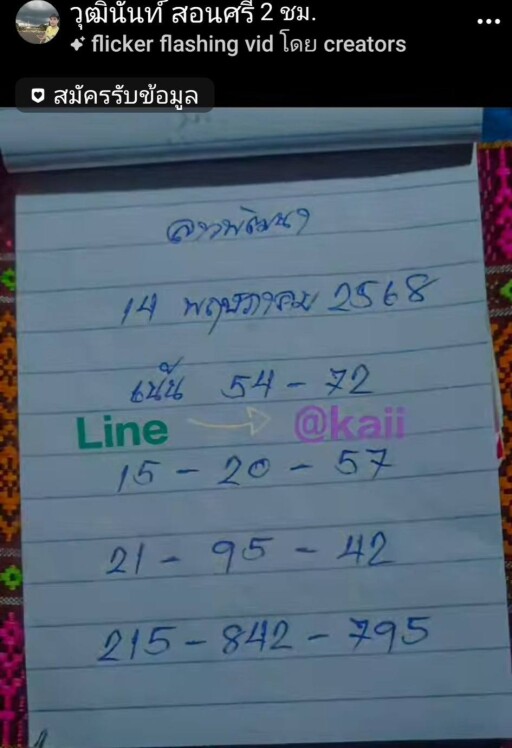 วุฒินันท์ สอนศรี 2 ชม.
flicker flashing vid โดย creators
สมัครรับข้อมูล
ลาวพัฒนา
14 พฤษภาคม 2568
เน้น 54 - 72
Line @kaii
15 - 20 - 57
21 - 95 - 42
215 - 842 - 795